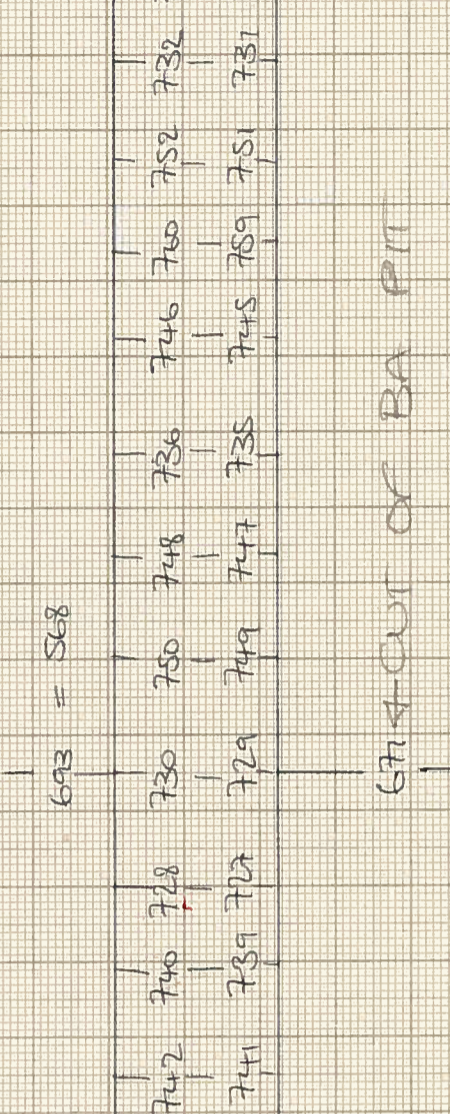 693 = 568
742 740 728 730 750 748 736 746 760 752 732
741 739 727 729 749 747 735 745 759 751 731
671 CUT OF BA PIT